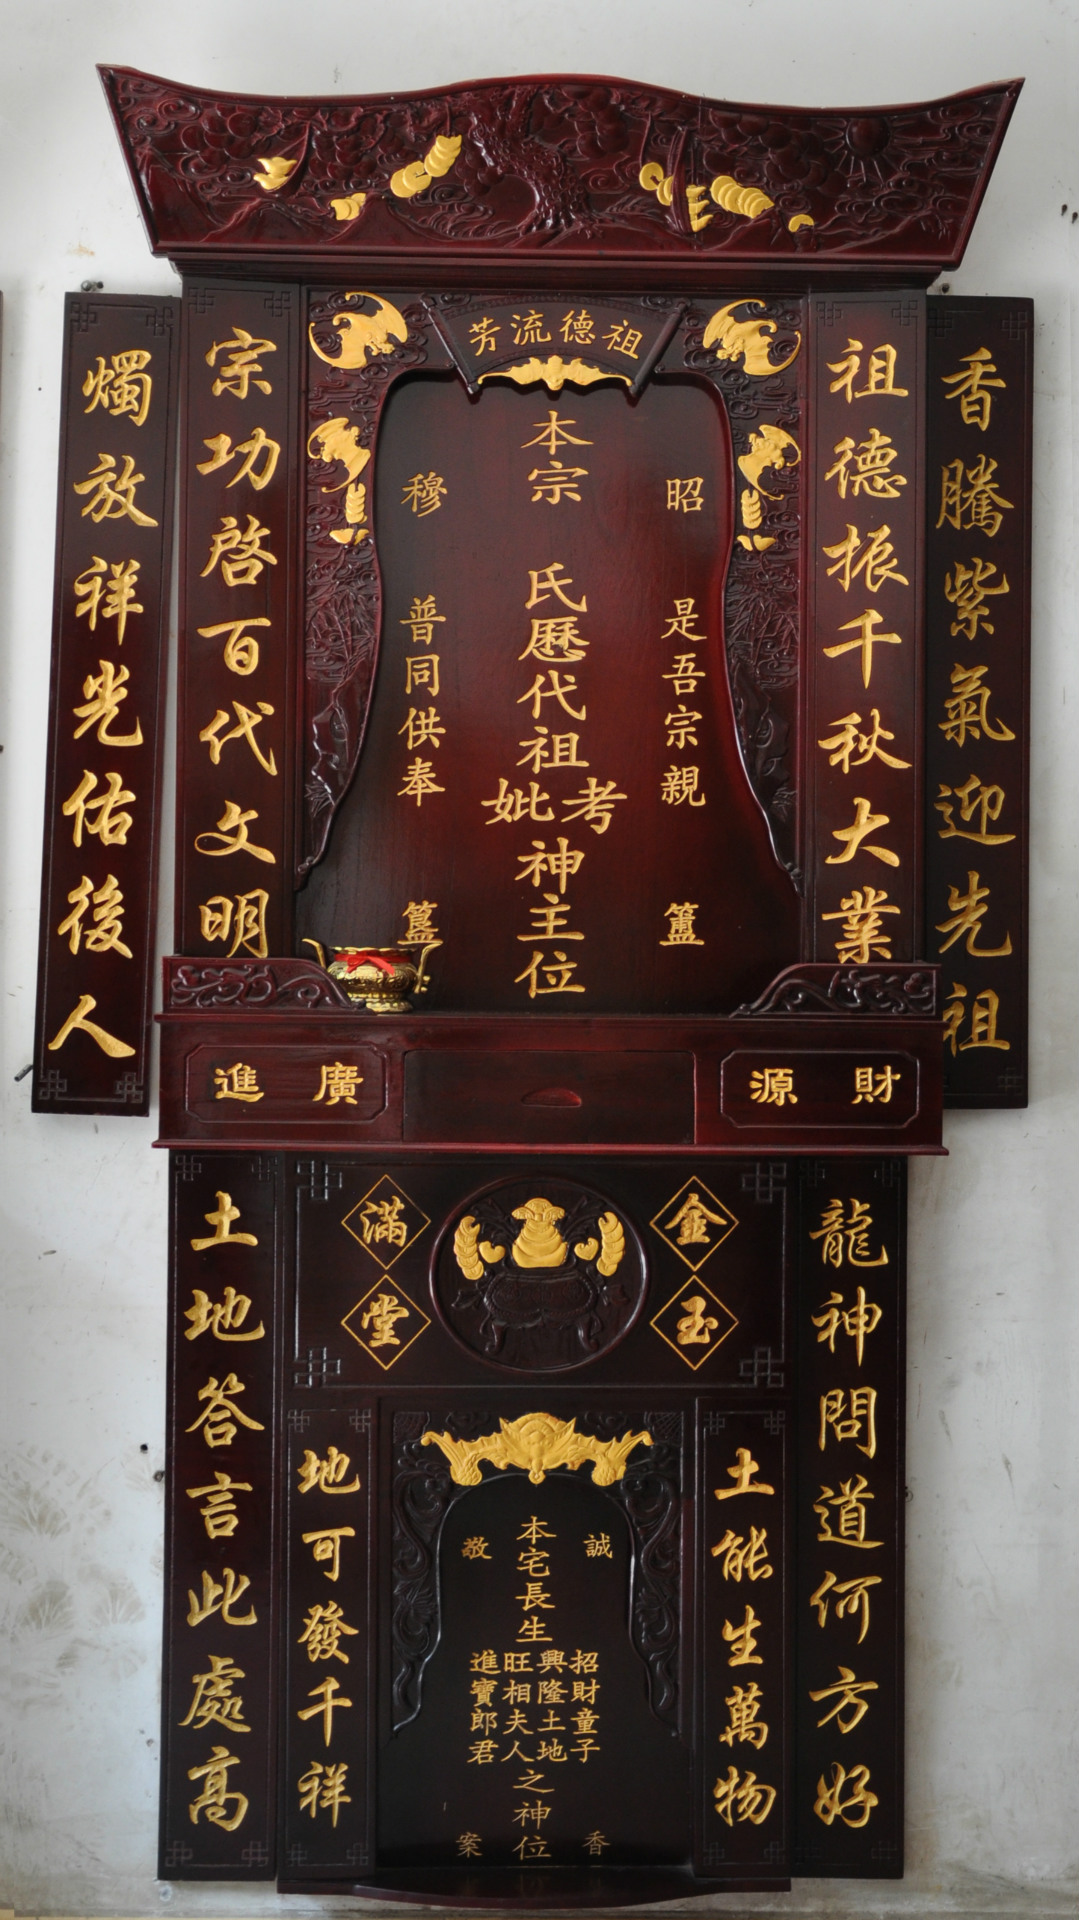 祖德流芳
香騰紫氣迎先祖
燭放祥光佑後人
祖德振千秋大業
宗功啓百代文明
昭 是吾宗親 簠
本宗 氏歷代祖考妣神主位
穆 普同供奉 簋
財源
廣進
金玉
滿堂
龍神問道何方好
土地答言此處高
土能生萬物
地可發千祥
誠 香
本宅長生
招財童子
興隆土地
旺相夫人
進寶郎君
之神位
敬 案